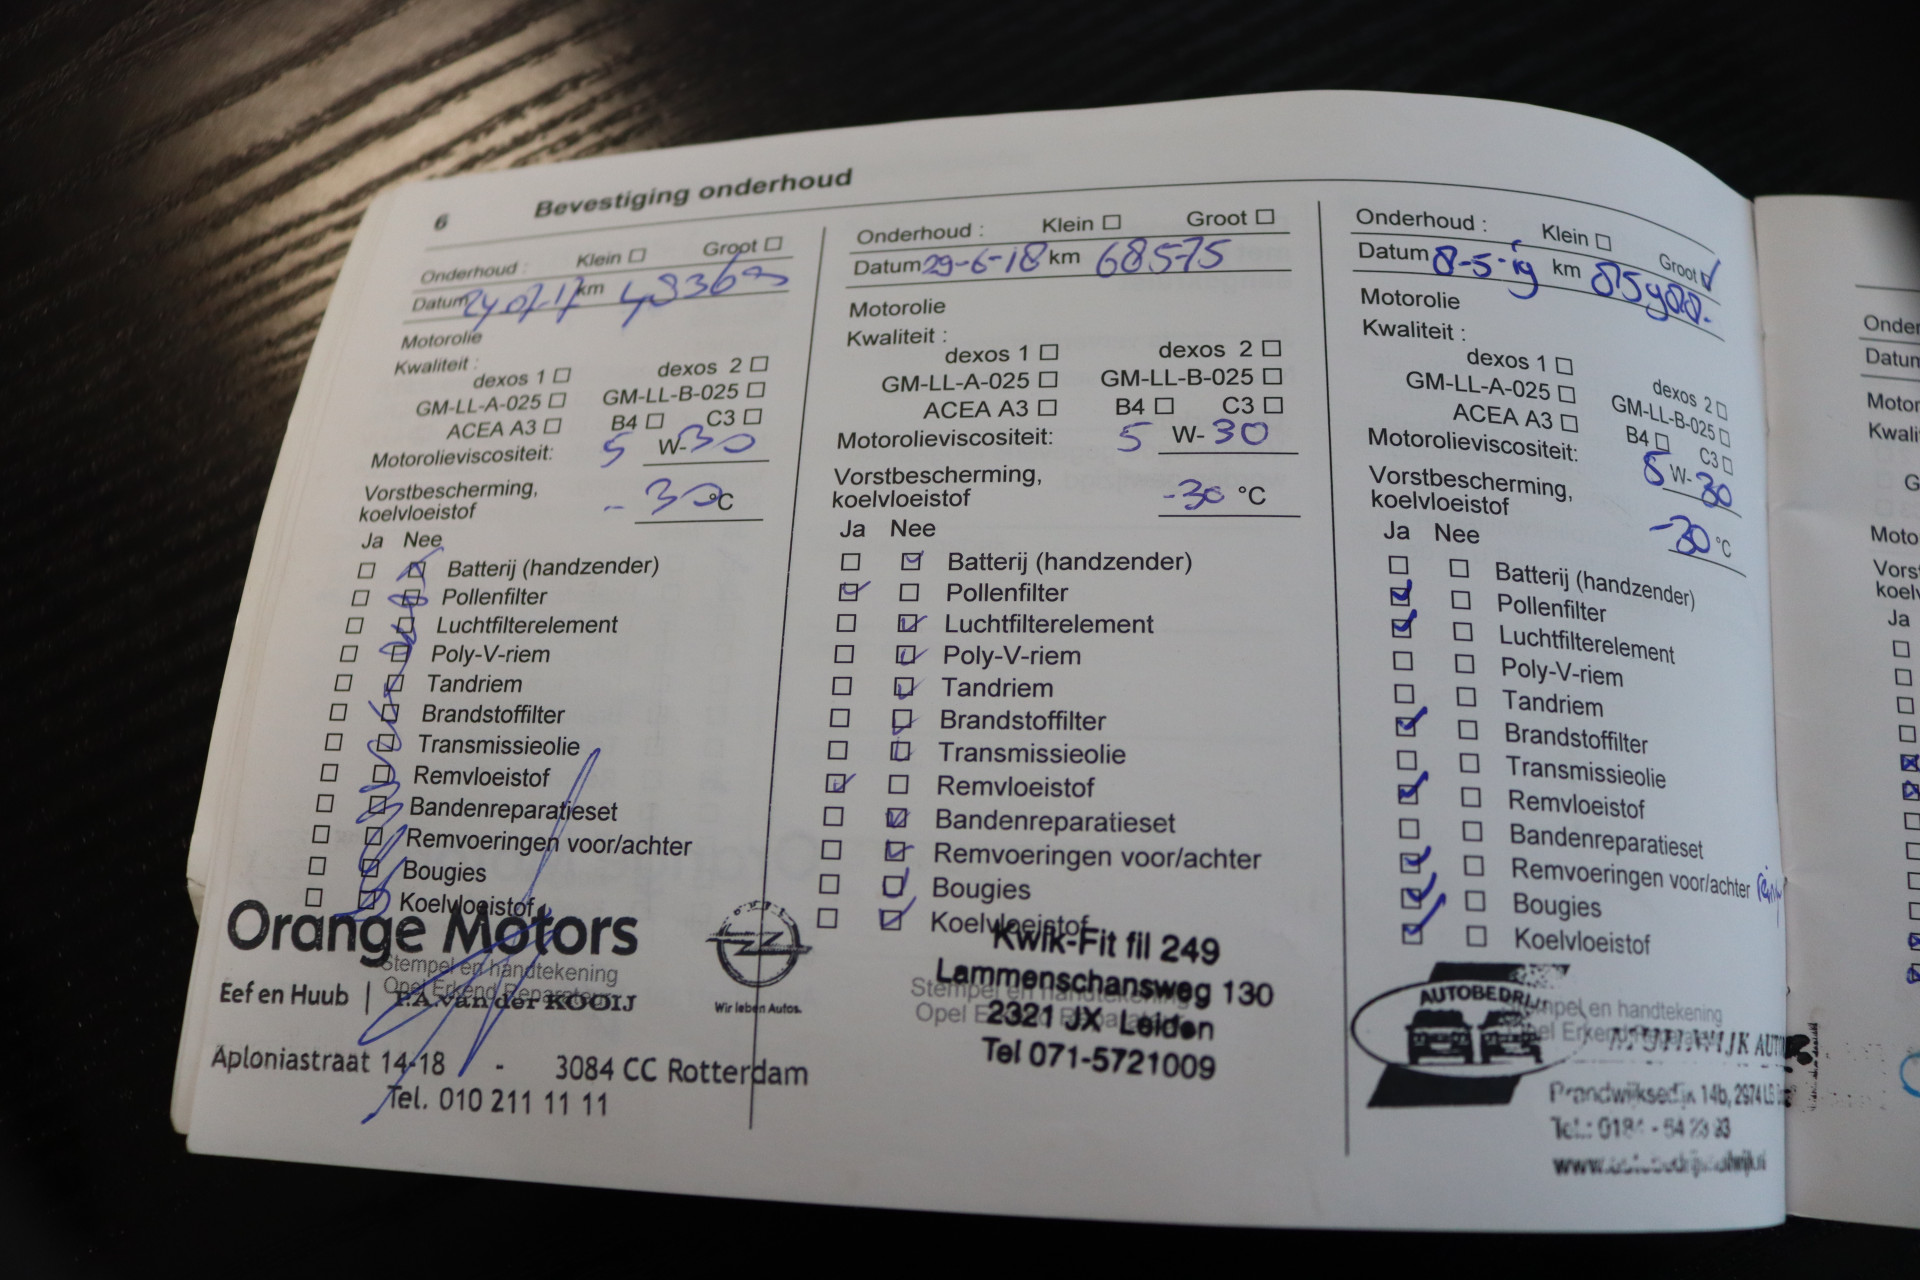 6 Bevestiging onderhoud
Onderhoud : Klein Groot
Datum 24 07-17 km
Motorolie
Kwaliteit :
dexos 1 dexos 2
GM-LL-A-025 GM-LL-B-025
ACEA A3 B4 C3
Motorolieviscositeit: 5 W-30
Vorstbescherming,
koelvloeistof -30 °C
Ja Nee
Batterij (handzender)
Pollenfilter
Luchtfilterelement
Poly-V-riem
Tandriem
Brandstoffilter
Transmissieolie
Remvloeistof
Bandenreparatieset
Remvoeringen voor/achter
Bougies
Koelvloeistof
Orange Motors
Stempel en handtekening
Opel Erkend Reparateur
Eef en Huub | P.A. van der KOOIJ
OPEL
Wir leben Autos.
Aploniastraat 14-18 - 3084 CC Rotterdam
Tel. 010 211 11 11
Onderhoud : Klein Groot
Datum 29-6-18 km 68575
Motorolie
Kwaliteit :
dexos 1 dexos 2
GM-LL-A-025 GM-LL-B-025
ACEA A3 B4 C3
Motorolieviscositeit: 5 W-30
Vorstbescherming,
koelvloeistof -30 °C
Ja Nee
Batterij (handzender)
Pollenfilter
Luchtfilterelement
Poly-V-riem
Tandriem
Brandstoffilter
Transmissieolie
Remvloeistof
Bandenreparatieset
Remvoeringen voor/achter
Bougies
Koelvloeistof
Kwik-Fit fil 249
Lammenschansweg 130
Stempel en handtekening
Opel Erkend Reparateur
2321 JX Leiden
Tel 071-5721009
Onderhoud : Klein Groot
Datum 8-5-19 km 85900.-
Motorolie
Kwaliteit :
dexos 1 dexos 2
GM-LL-A-025 GM-LL-B-025
ACEA A3 B4 C3
Motorolieviscositeit: 5 W-30
Vorstbescherming,
koelvloeistof -30 °C
Ja Nee
Batterij (handzender)
Pollenfilter
Luchtfilterelement
Poly-V-riem
Tandriem
Brandstoffilter
Transmissieolie
Remvloeistof
Bandenreparatieset
Remvoeringen voor/achter
Bougies
Koelvloeistof
AUTOBEDRIJF
Stempel en handtekening
Opel Erkend Reparateur
14b, 2974 L
Tel.: 0184 -
Ja